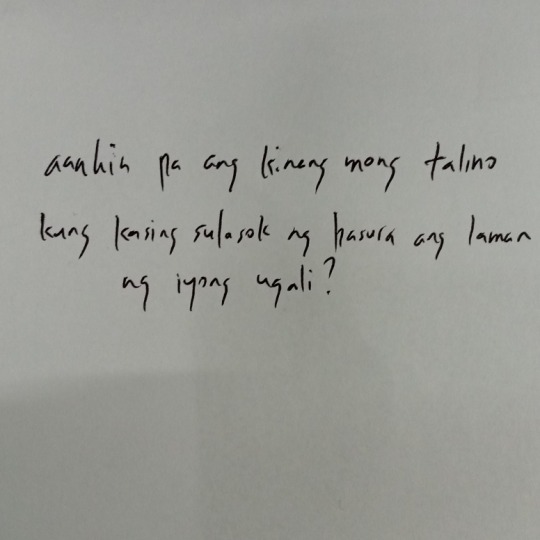 aanhin pa ang kinang mong talino
kung kasing sulasok ng basura ang laman
ng iyong ugali?